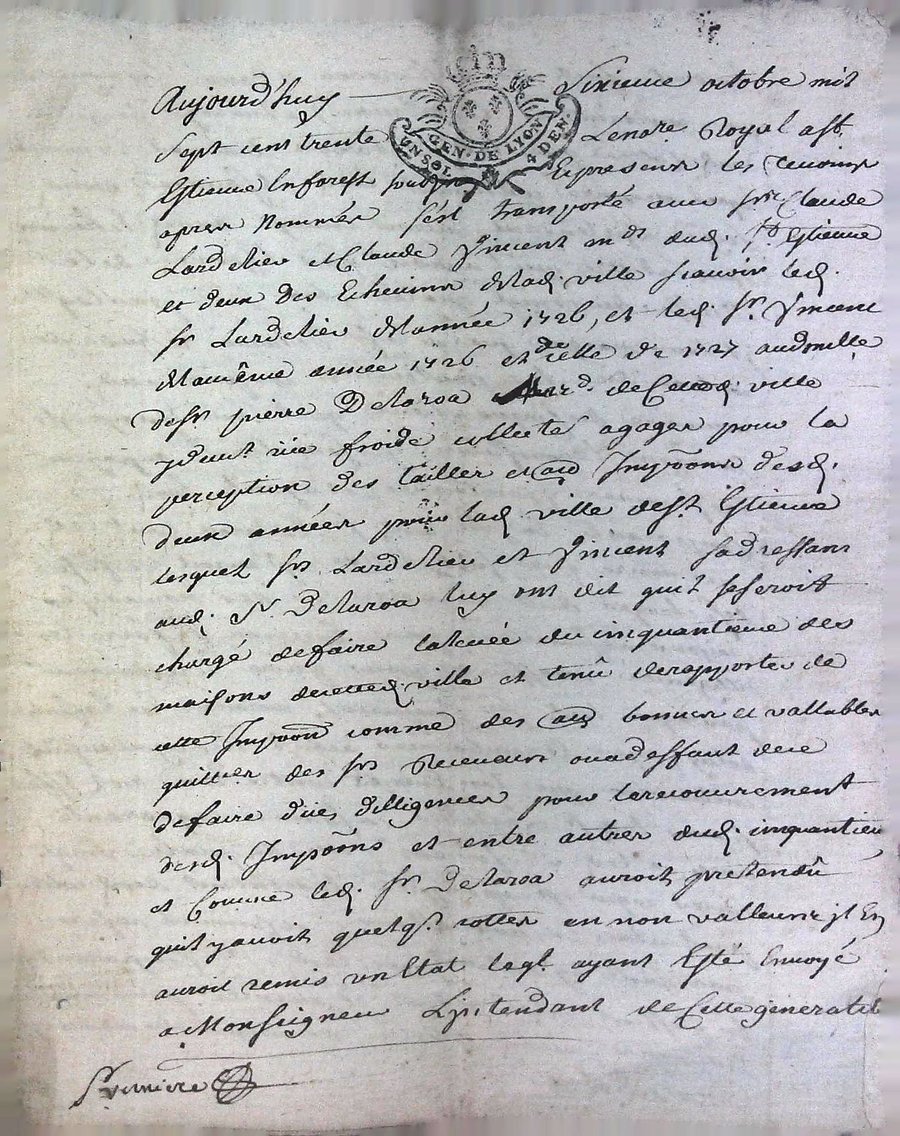 Aujourd'huy Sixieme octobre mil
GEN. DE LYON
UN SOL 4 DEN.
Sept cent trente Lenore Royal a St.
Estienne en forest sous En presence les temoins
apres Nommés s'est transporté avec Srs. Claude
Lardelier et Claude Vincent mds. dud. St. Estienne
et deux des Echevins de lad. ville scavoir led.
Sr. Lardelier de l'année 1726, et led. Sr. Vincent
de la même année 1726 et de celle de 1727 au domicille
de Sr. pierre Delaroa md. de Cetted. ville
y deмt. rüe froide collecteé agages pour la
perception des tailles et au Impoõns desd.
deux années pour lad. ville de St. Estienne
lesquel Srs. Lardelier et Vincent sadressans
aud. Sr. Delaroa luy ont dit quil se seroit
chargé de faire la levée du cinquantieme des
maisons de cetted. ville et tenû de rapporter de
cette Impoõn comme des au bonnes et vallables
quittces. des Srs. Receveurs ou a deffaut de ce
de faire dües dilligences pour le recouvrement
desd. Impoõns et entre autres dud. cinquantieme
et Comme led. Sr. Delaroa auroit pretendû
quil y avoit quelqs. cottes en non valleurs il En
auroit remis un Etat leql. ayant Esté Envoyé
a Monseigneur L'intendant de Cette generalité